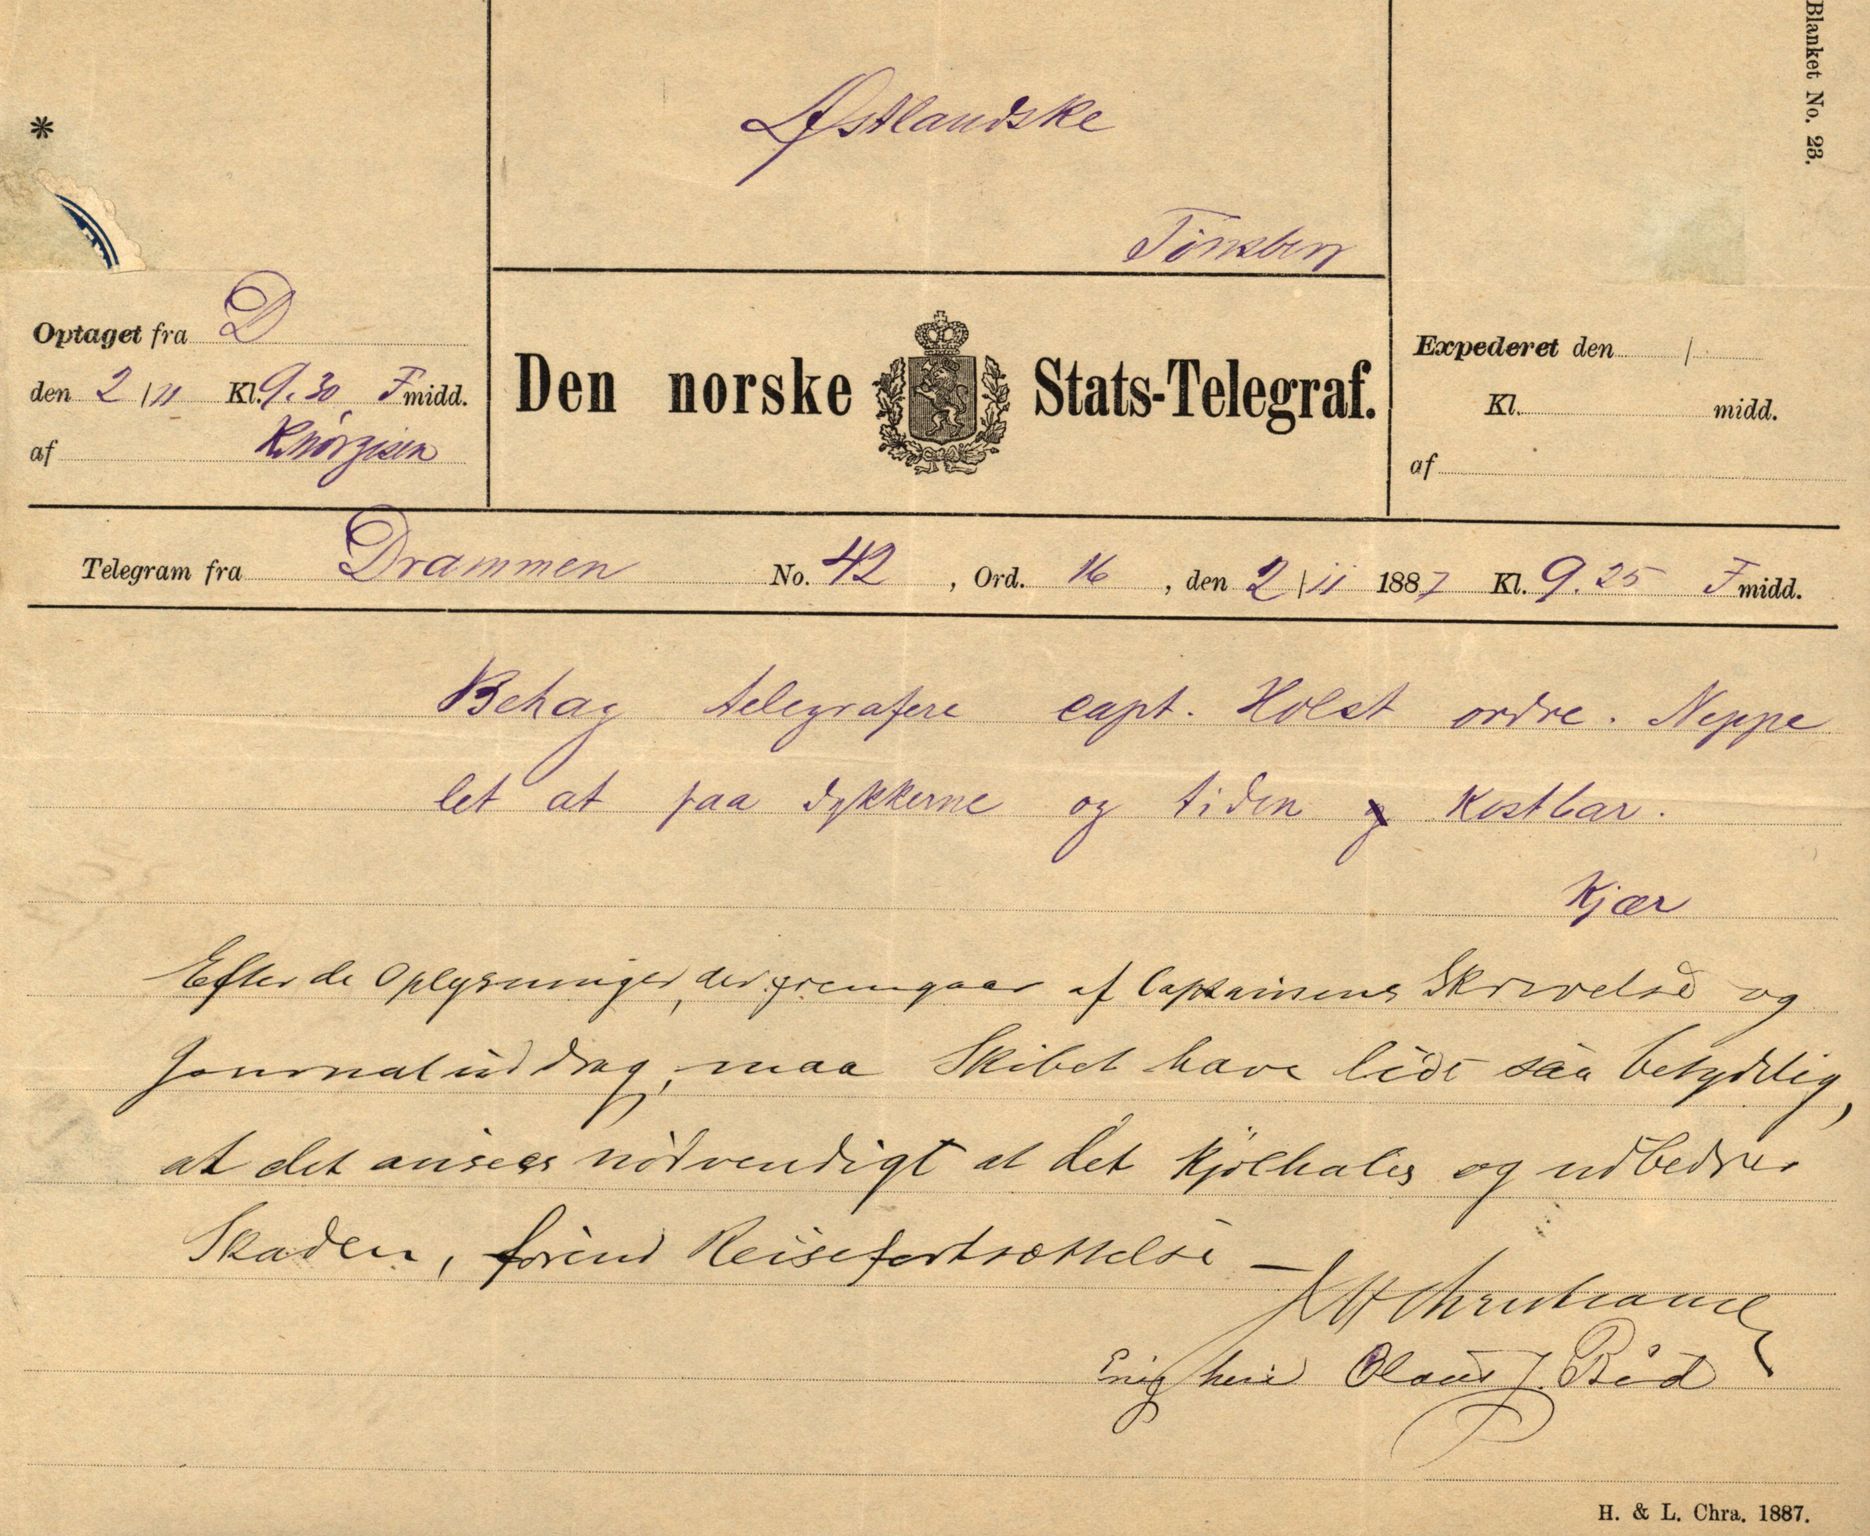 Blanket No. 23.
Østlandske
Tönsberg
Optaget fra D
den 2/11 Kl. 9.30 Fmidd.
af
Den norske Stats-Telegraf.
Expederet den /
Kl. midd.
af
Telegram fra Drammen No. 42, Ord. 16, den 2/11 1887 Kl. 9.25 Fmidd.
Behag telegrafere capt. Holst ordre. Neppe
let at faa dykkerne og tiden kostbar.
Kjær
Efter de Oplysninger, der fremgaar af Captainens Skrivelse og
Journaluddrag, maa Skibet have lidt saa betydelig,
at det ansees nödvendigt at det kjölhales og udbedres
Skaden, förend Reisefortsættelse –
Christiansen
Enig heri Olaus J. Böd
H. & L. Chra. 1887.